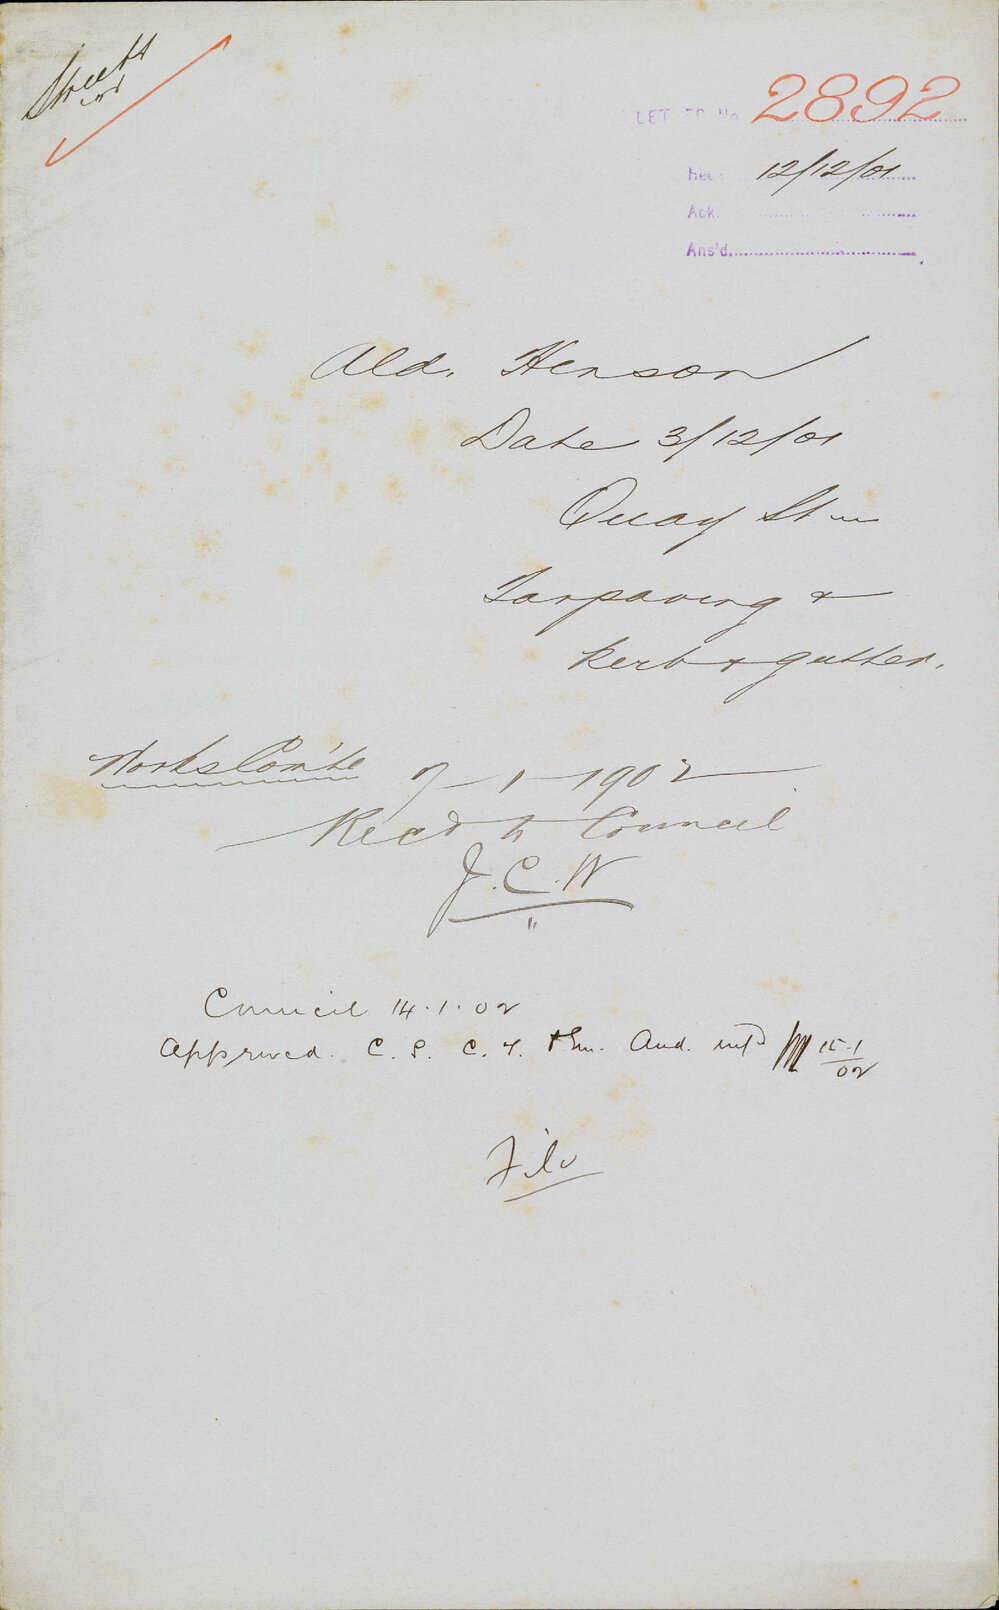 Streets
ind
LETTER No 2892
Rec 12/12/01
Ack.
Ans'd.
Ald. Henson
Date 3/12/01
Quay St
Tarpaving &
kerb & gutter.
Works Com'te 7-1-1902
Recd to Council
J.C.W
Council 14.1.02
Approved. C. S. C. T. And. infd 15.1
02
File